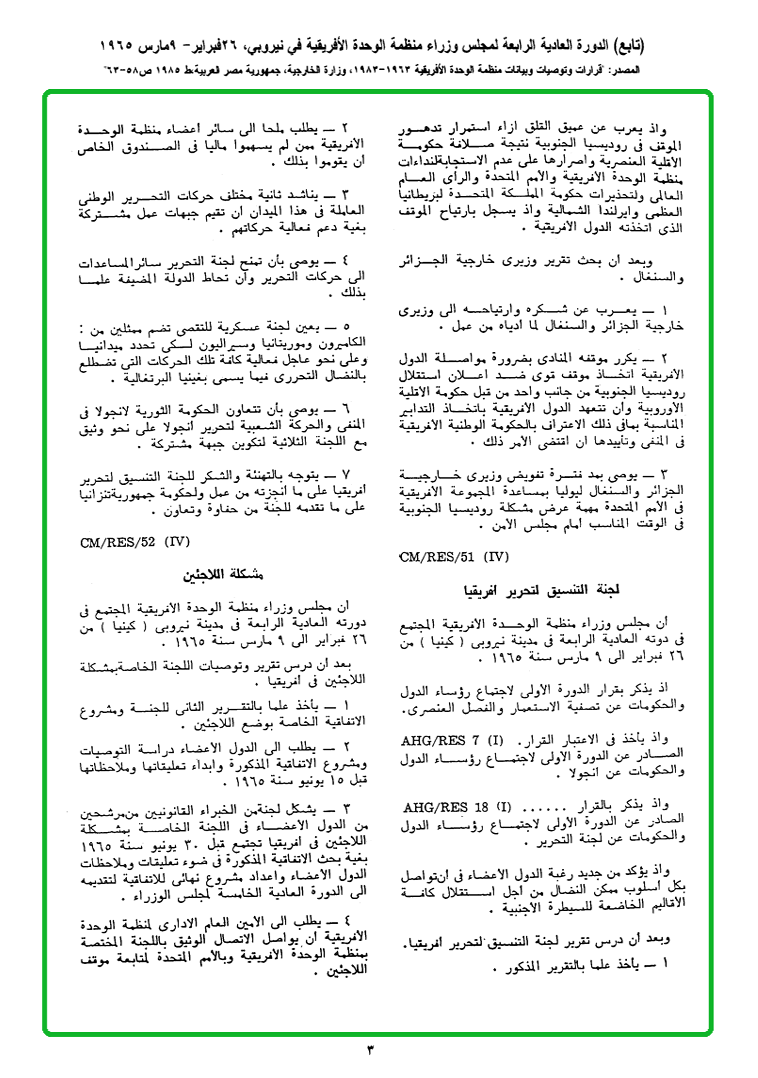 (تابع) الدورة العادية الرابعة لمجلس وزراء منظمة الوحدة الأفريقية في نيروبي، ٢٦فبراير- ٩مارس ١٩٦٥
المصدر: "قرارات وتوصيات وبيانات منظمة الوحدة الأفريقية ١٩٦٣-١٩٨٣، وزارة الخارجية، جمهورية مصر العربية،ط ١٩٨٥ ص٥٨-٦٣"
واذ يعرب عن عميق القلق ازاء استمرار تدهور
الموقف فى روديسيا الجنوبية نتيجة صلافة حكومة
الأقلية العنصرية واصرارها على عدم الاستجابة لنداءات
منظمة الوحدة الأفريقية والأمم المتحدة والرأى العام
العالمى ولتحذيرات حكومة المملكة المتحدة لبريطانيا
العظمى وايرلندا الشمالية واذ يسجل بارتياح الموقف
الذى اتخذته الدول الأفريقية .
وبعد أن بحث تقرير وزيرى خارجية الجزائر
والسنغال .
١ — يعرب عن شكره وارتياحه الى وزيرى
خارجية الجزائر والسنغال لما أدياه من عمل .
٢ — يكرر موقفه المنادى بضرورة مواصلة الدول
الأفريقية اتخاذ موقف قوى ضد اعلان استقلال
روديسيا الجنوبية من جانب واحد من قبل حكومة الأقلية
الأوروبية وأن تتعهد الدول الأفريقية باتخاذ التدابير
المناسبة بمافى ذلك الاعتراف بالحكومة الوطنية الأفريقية
فى المنفى وتأييدها ان اقتضى الأمر ذلك .
٣ — يوصى بمد فترة تفويض وزيرى خارجية
الجزائر والسنغال ليوليا بمساعدة المجموعة الأفريقية
فى الأمم المتحدة مهمة عرض مشكلة روديسيا الجنوبية
فى الوقت المناسب أمام مجلس الأمن .
CM/RES/51 (IV)
لجنة التنسيق لتحرير افريقيا
أن مجلس وزراء منظمة الوحدة الأفريقية المجتمع
فى دوته العادية الرابعة فى مدينة نيروبى ( كينيا ) من
٢٦ فبراير الى ٩ مارس سنة ١٩٦٥ .
اذ يذكر بقرار الدورة الأولى لاجتماع رؤساء الدول
والحكومات عن تصفية الاستعمار والفصل العنصرى.
واذ يأخذ فى الاعتبار القرار. AHG/RES 7 (I)
الصادر عن الدورة الأولى لاجتماع رؤساء الدول
والحكومات عن أنجولا .
واذ يذكر بالقرار ...... AHG/RES 18 (I)
الصادر عن الدورة الأولى لاجتماع رؤساء الدول
والحكومات عن لجنة التحرير .
واذ يؤكد من جديد رغبة الدول الأعضاء فى ان تواصل
بكل أسلوب ممكن النضال من أجل استقلال كافة
الأقاليم الخاضعة للسيطرة الأجنبية .
وبعد أن درس تقرير لجنة التنسيق لتحرير أفريقيا.
١ — يأخذ علما بالتقرير المذكور .
٢ — يطلب ملحا الى سائر أعضاء منظمة الوحدة
الأفريقية ممن لم يسهموا ماليا فى الصندوق الخاص
ان يقوموا بذلك .
٣ — يناشد ثانية مختلف حركات التحرير الوطنى
العاملة فى هذا الميدان ان تقيم جبهات عمل مشتركة
بغية دعم فعالية حركاتهم .
٤ — يوصى بأن تمنح لجنة التحرير سائر المساعدات
الى حركات التحرير وأن تحاط الدولة المضيفة علما
بذلك .
٥ — يعين لجنة عسكرية للتقصى تضم ممثلين من :
الكاميرون وموريتانيا وسيراليون لكى تحدد ميدانيا
وعلى نحو عاجل فعالية كافة تلك الحركات التى تضطلع
بالنضال التحررى فيما يسمى بغينيا البرتغالية .
٦ — يوصى بأن تتعاون الحكومة الثورية لانجولا فى
المنفى والحركة الشعبية لتحرير أنجولا على نحو وثيق
مع اللجنة الثلاثية لتكوين جبهة مشتركة .
٧ — يتوجه بالتهنئة والشكر للجنة التنسيق لتحرير
أفريقيا على ما أنجزته من عمل ولحكومة جمهورية تنزانيا
على ما تقدمه للجنة من حفاوة وتعاون .
CM/RES/52 (IV)
مشكلة اللاجئين
ان مجلس وزراء منظمة الوحدة الأفريقية المجتمع فى
دورته العادية الرابعة فى مدينة نيروبى ( كينيا ) من
٢٦ فبراير الى ٩ مارس سنة ١٩٦٥ .
بعد أن درس تقرير وتوصيات اللجنة الخاصة بمشكلة
اللاجئين فى أفريقيا .
١ — يأخذ علما بالتقرير الثانى للجنة ومشروع
الاتفاقية الخاصة بوضع اللاجئين .
٢ — يطلب الى الدول الأعضاء دراسة التوصيات
ومشروع الاتفاقية المذكورة وابداء تعليقاتها وملاحظاتها
قبل ١٥ يونيو سنة ١٩٦٥ .
٣ — يشكل لجنة من الخبراء القانونيين من مرشحين
من الدول الأعضاء فى اللجنة الخاصة بمشكلة
اللاجئين فى أفريقيا تجتمع قبل ٣٠ يونيو سنة ١٩٦٥
بغية بحث الاتفاقية المذكورة فى ضوء تعليقات وملاحظات
الدول الأعضاء واعداد مشروع نهائى للاتفاقية لتقديمه
الى الدورة العادية الخامسة لمجلس الوزراء .
٤ — يطلب الى الأمين العام الادارى لمنظمة الوحدة
الأفريقية أن يواصل الاتصال الوثيق باللجنة المختصة
بمنظمة الوحدة الأفريقية وبالأمم المتحدة لمتابعة موقف
اللاجئين .
٣